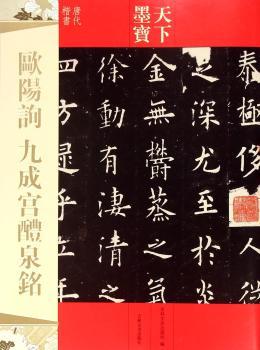 唐代
楷書
天下
墨寶
歐陽詢 九成宫醴泉銘
泰極侈
深尤至於炎
金無鬱蒸之氣
徐動有淒清之
四方逮乎立